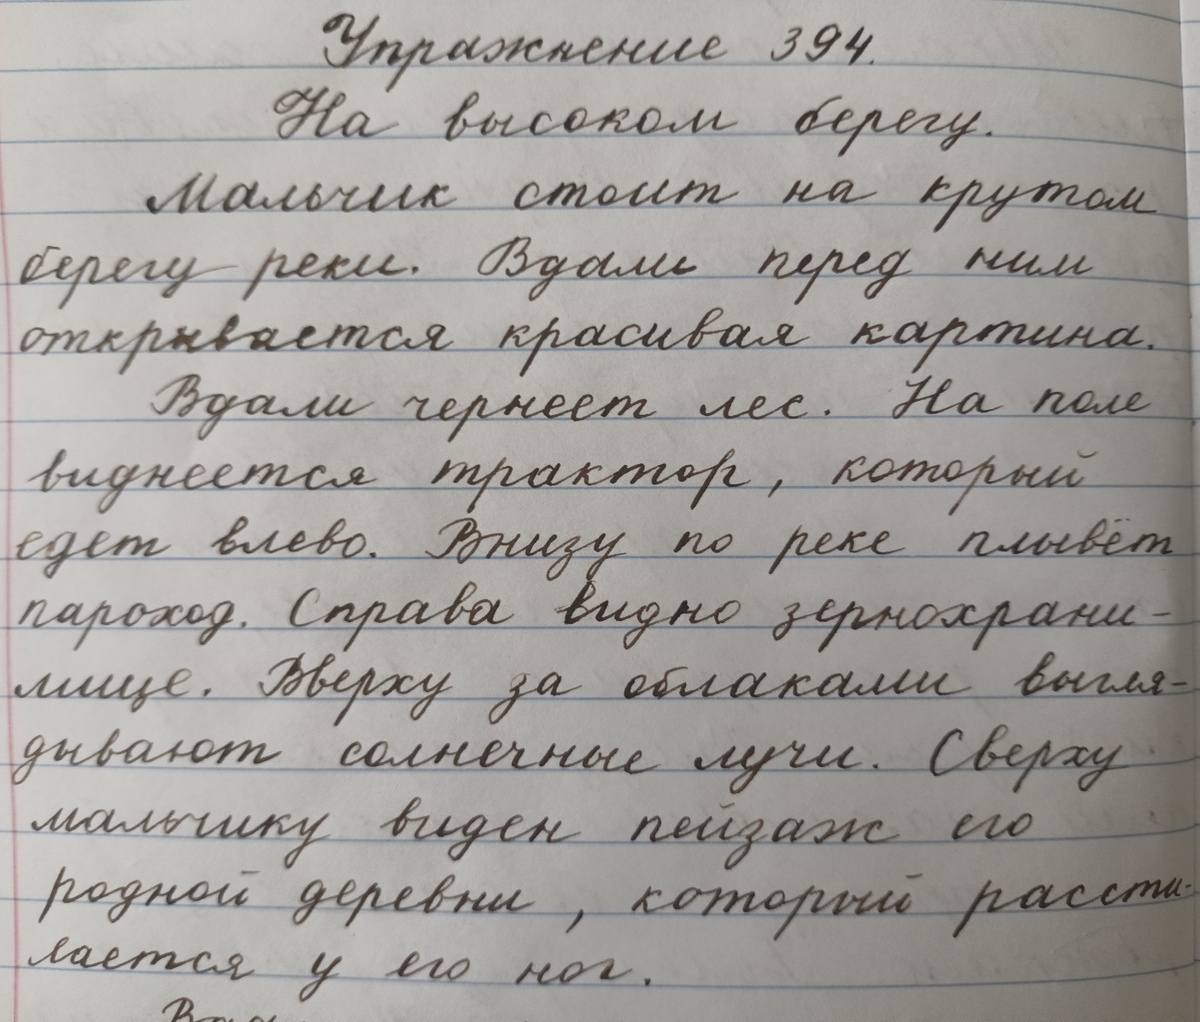 Упражнение 394.
На высоком берегу.
Мальчик стоит на крутом
берегу реки. Вдали перед ним
открывается красивая картина.
Вдали чернеет лес. На поле
виднеется трактор, который
едет влево. Внизу по реке плывёт
пароход. Справа видно зернохрани-
лище. Вверху за облаками выгля-
дывают солнечные лучи. Сверху
мальчику виден пейзаж его
родной деревни, который рассти-
лается у его ног.